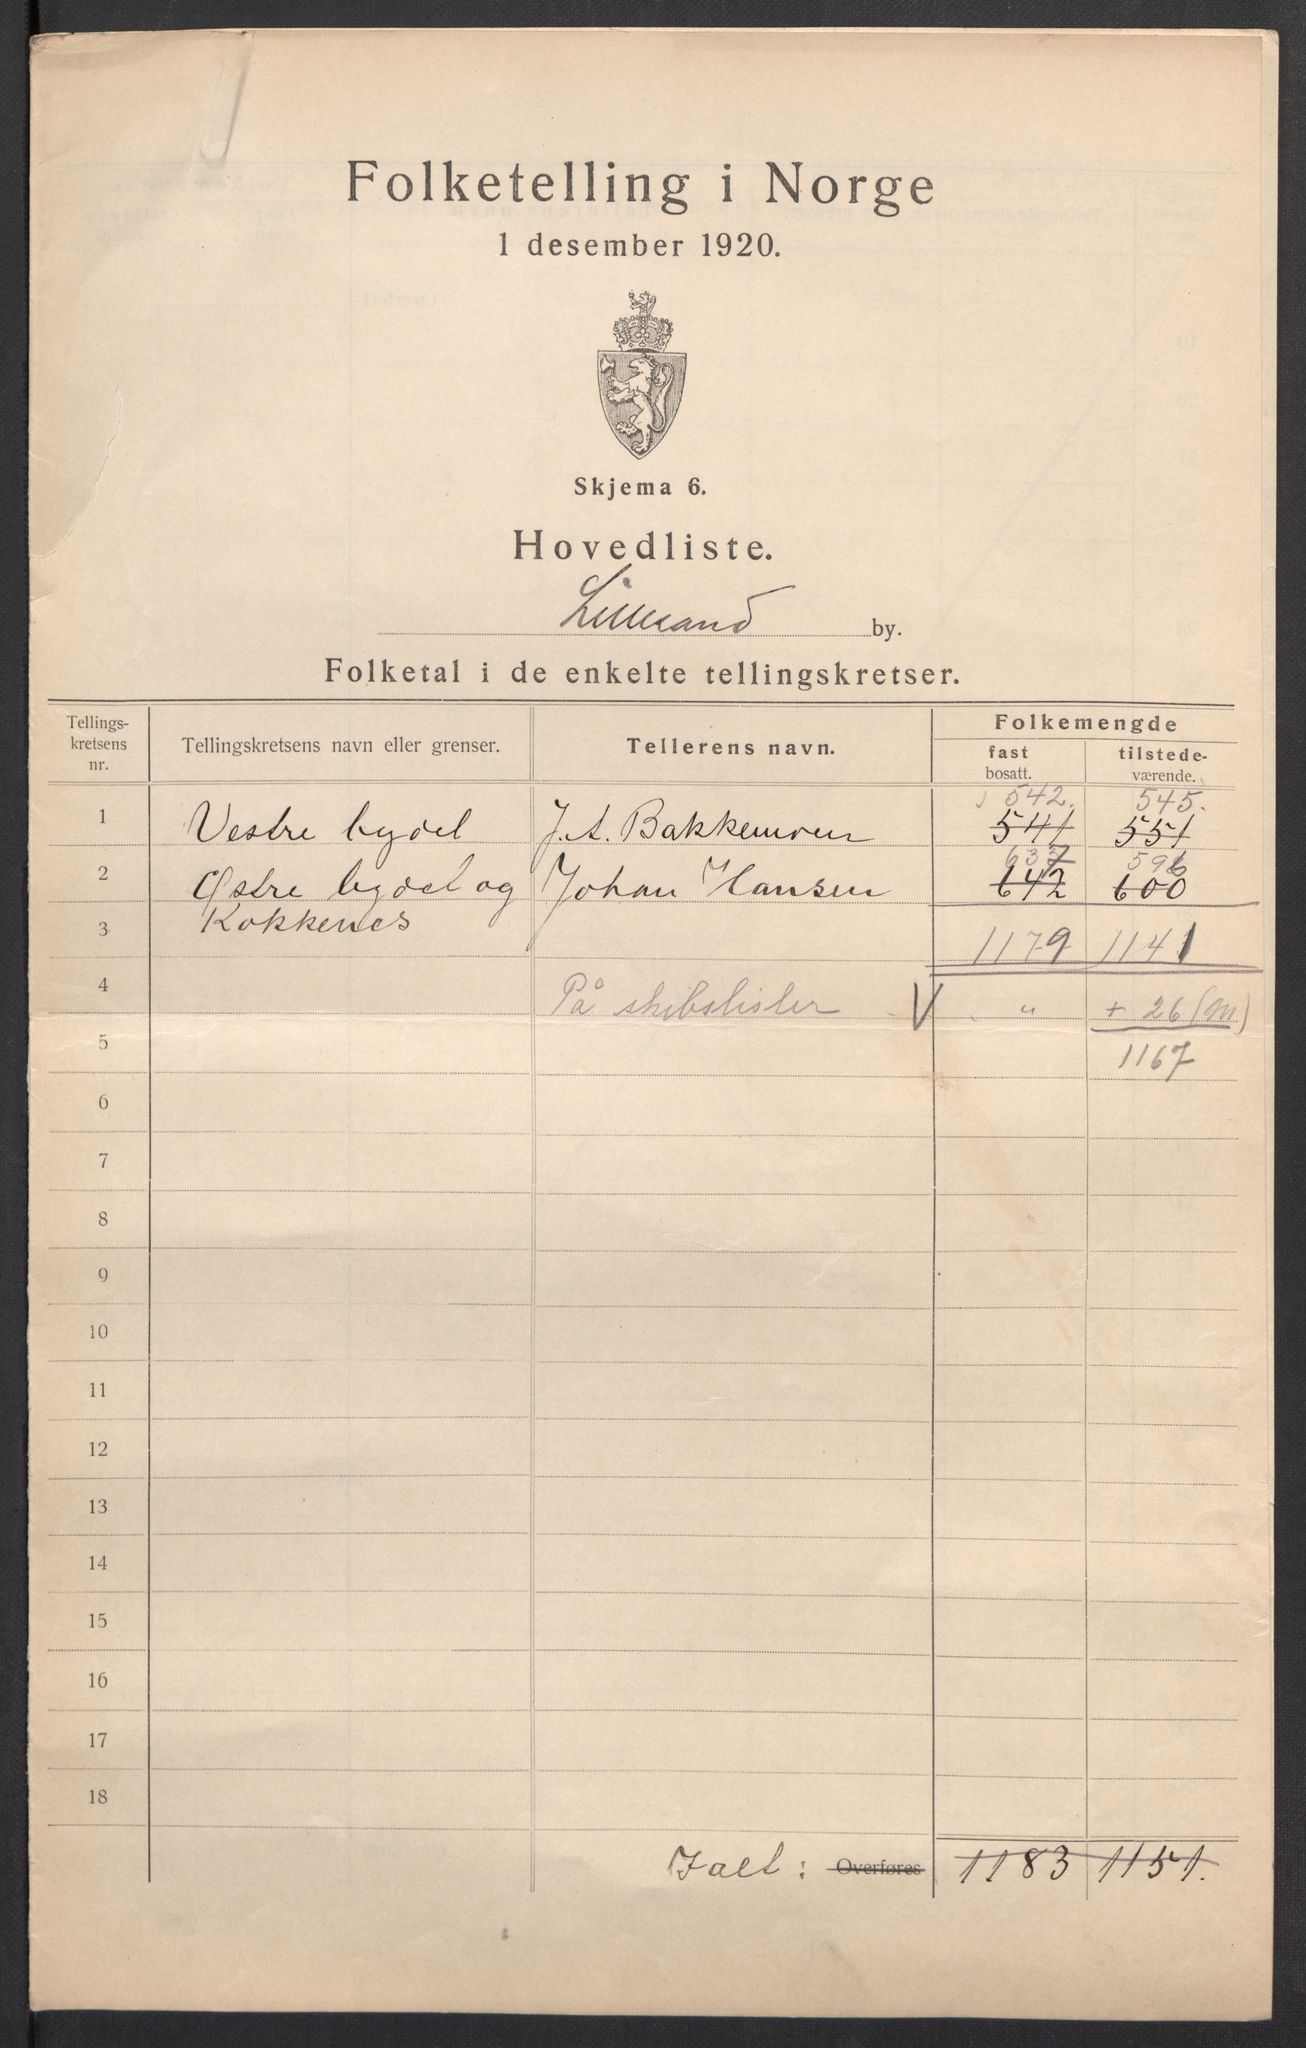 Folketelling i Norge
1 desember 1920.
Skjema 6.
Hovedliste.
Lillesand by.
Folketal i de enkelte tellingskretser.
Tellings-
kretsens
nr.
Tellingskretsens navn eller grenser.
Tellerens navn.
Folkemengde
fast
bosatt.
tilstede-
værende.
542. 545.
1 Vestre bydel J. A. Bakkemoen 541 551
637 596
2 Østre bydel og Johan Hansen 642 600
3 Kokkenes 1179 1141
4 På skibslister V " + 26 (m)
5 1167
6
7
8
9
10
11
12
13
14
15
16
17
18
Ialt: Overføres 1183 1151.